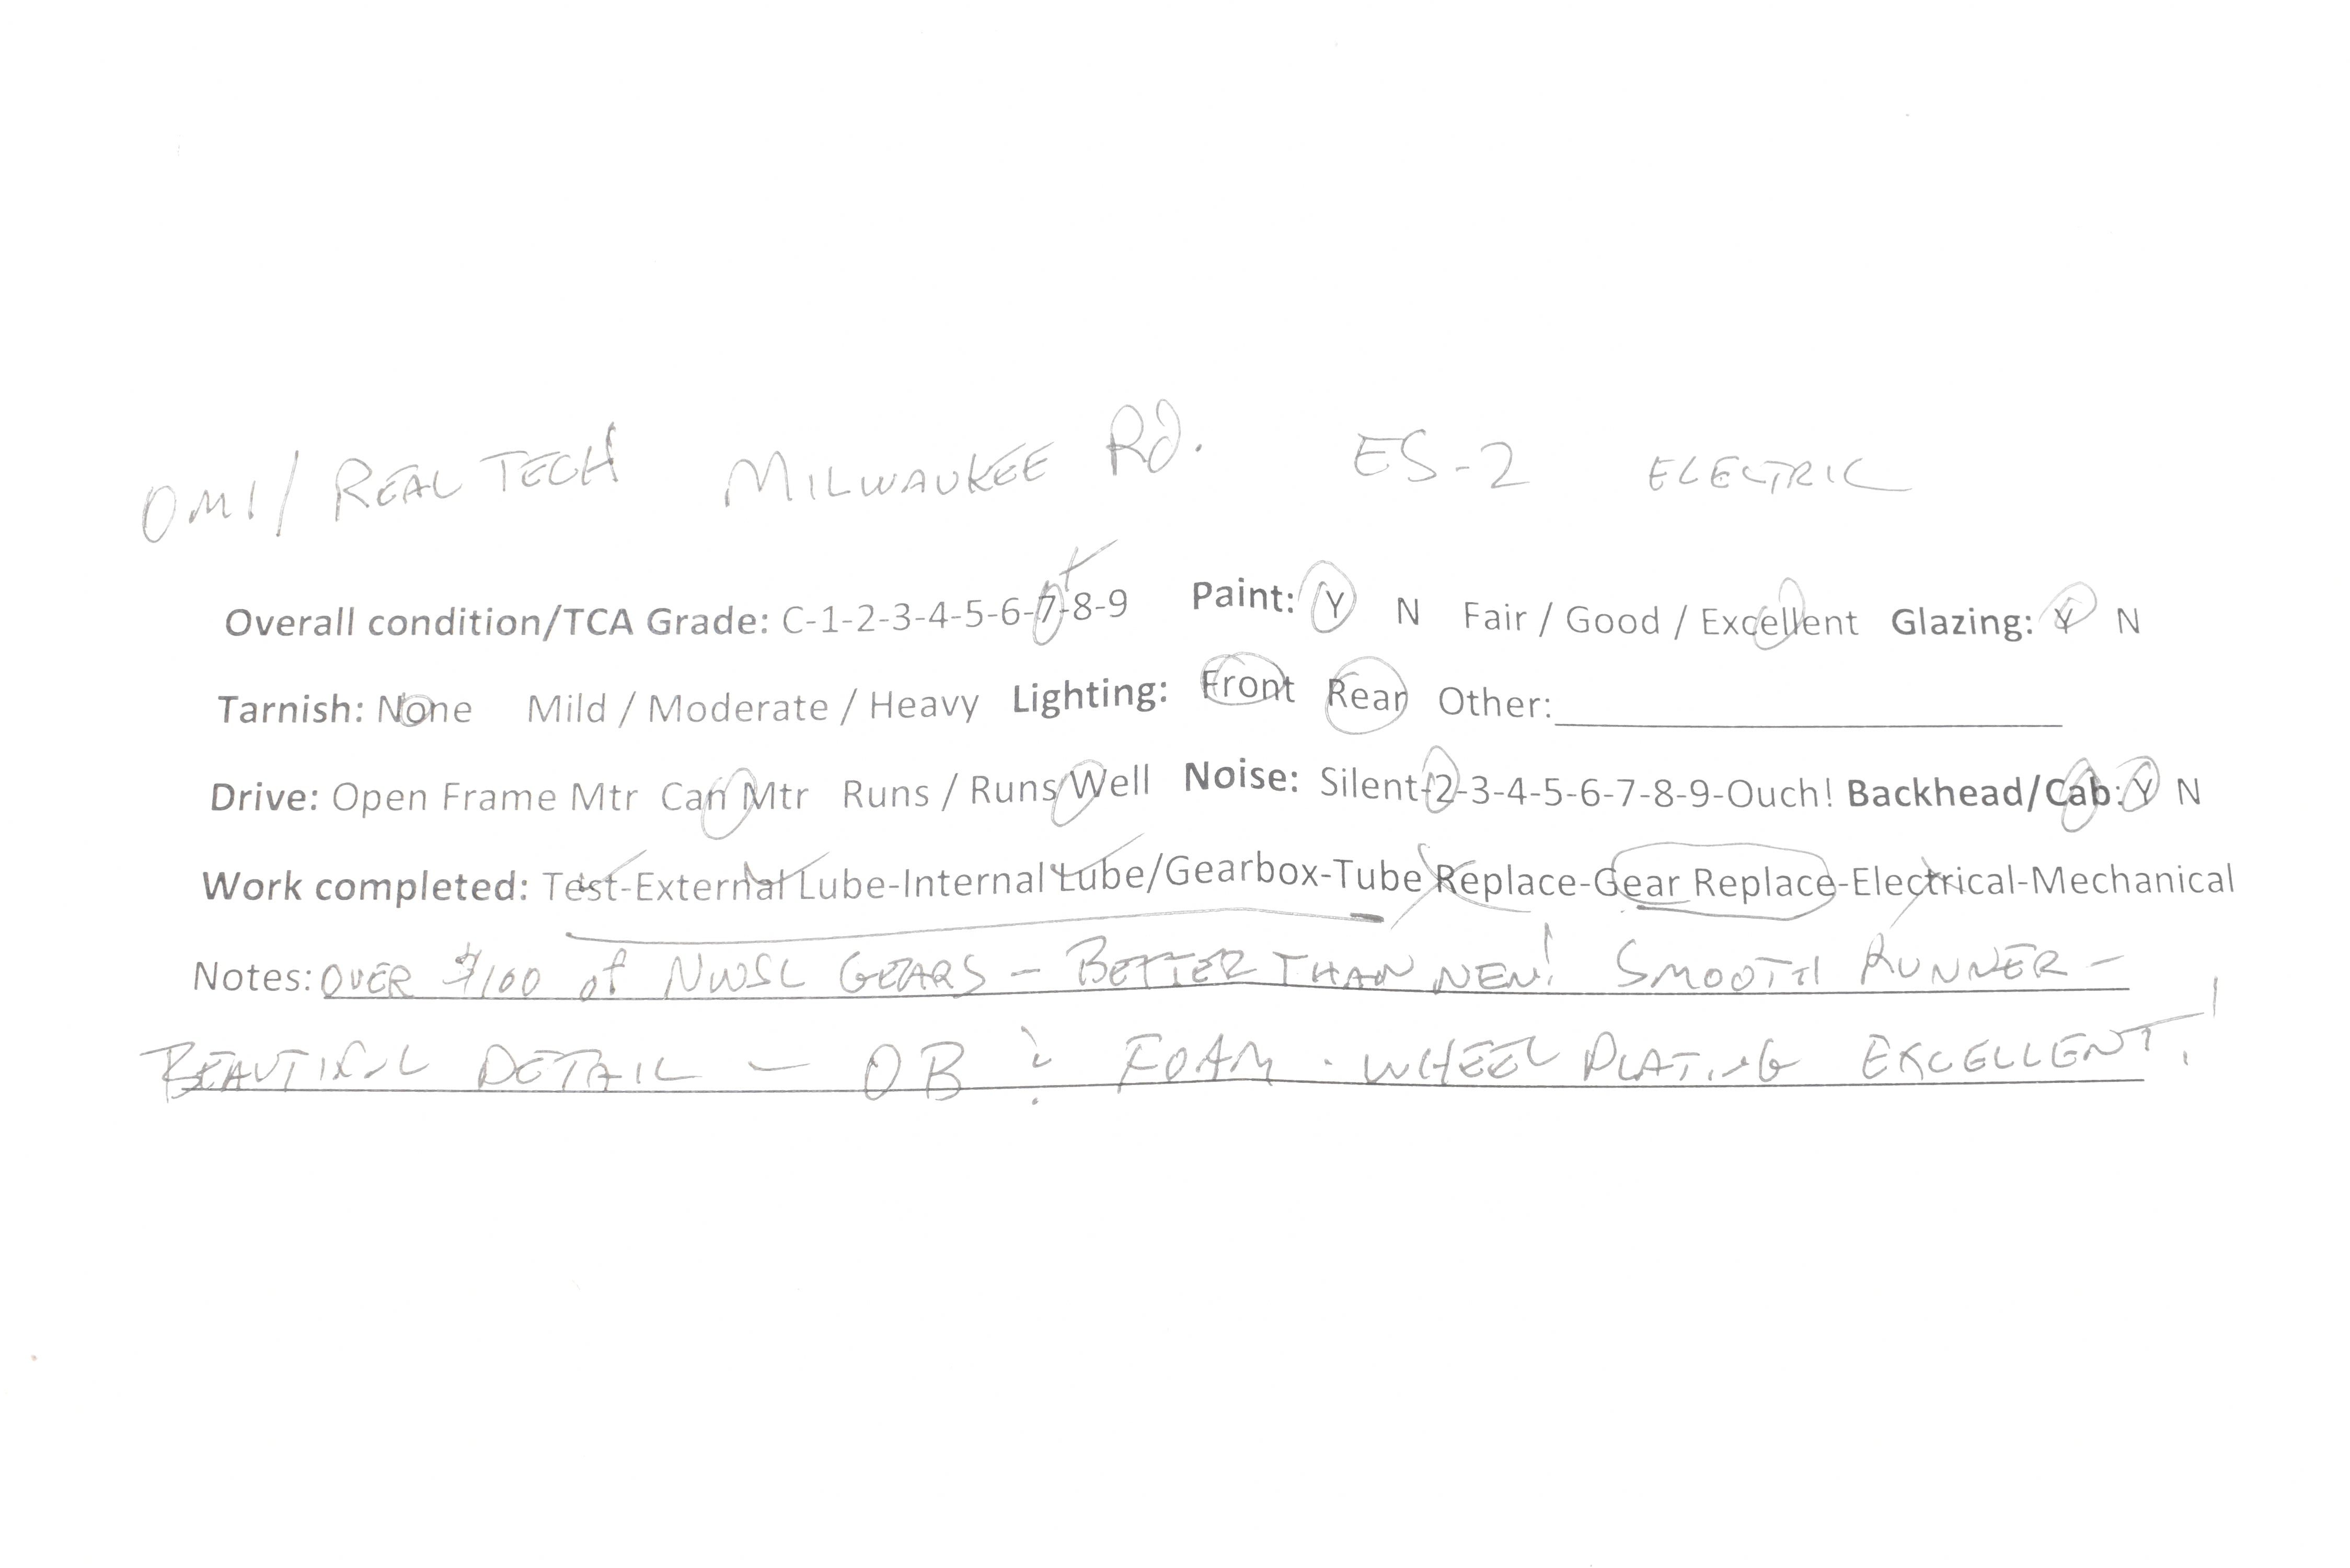 OMI/ REAL TECH MILWAUKEE Rd. ES-2 ELECTRIC
Overall condition/TCA Grade: C-1-2-3-4-5-6-7+-8-9 Paint: Y N Fair / Good / Excellent Glazing: Y N
Tarnish: None Mild / Moderate / Heavy Lighting: Front Rear Other:
Drive: Open Frame Mtr Can Mtr Runs / Runs Well Noise: Silent-2-3-4-5-6-7-8-9-Ouch! Backhead/Cab: Y N
Work completed: Test-External Lube-Internal Lube/Gearbox-Tube Replace-Gear Replace-Electrical-Mechanical
Notes: OVER $100 of NWSL GEARS - BETTER THAN NEW! SMOOTH RUNNER -
BEAUTIFUL DETAIL - OB & FOAM. WHEEL PLATING EXCELLENT!